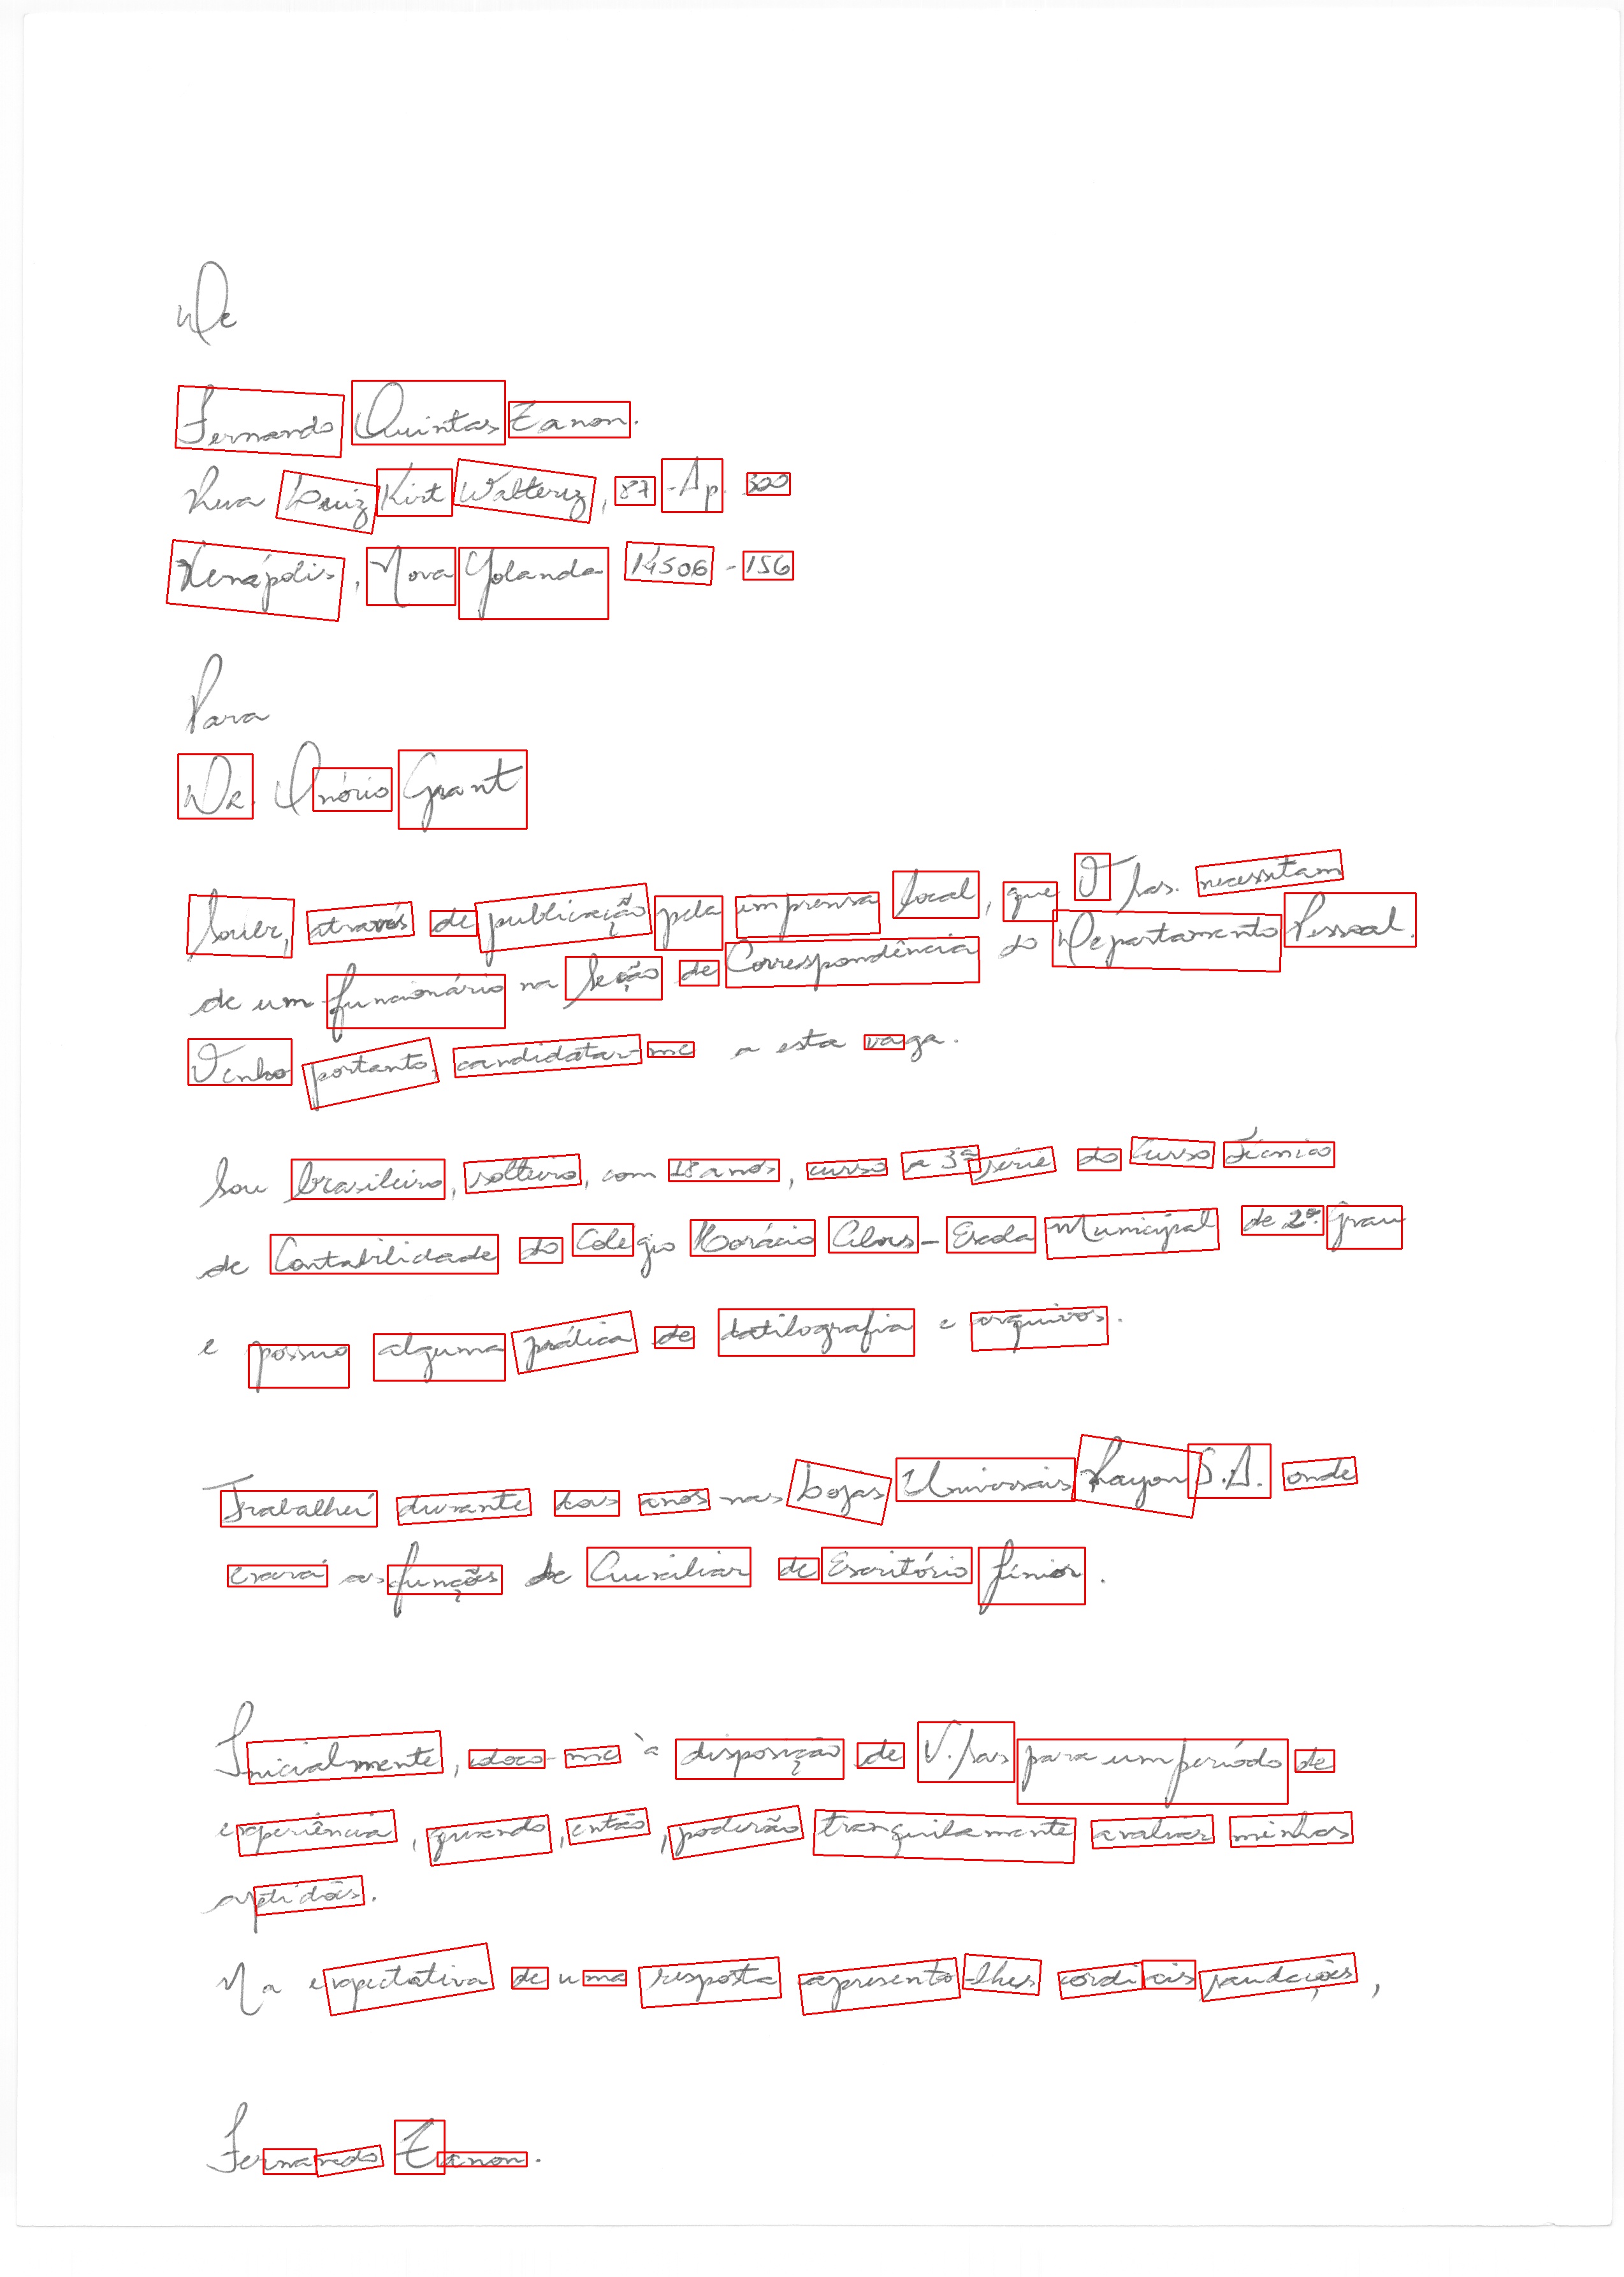 De
Fernando Quintas Zanon.
Rua Luiz Kirt Walteriz, 87 - Ap. 300
Xenápolis, Nova Yolanda 14506 - 156
Para
Dr. Onório Grant
Souber, através de publicação pela imprensa local, que V Sas. necessitam
de um funcionário na Seção de Correspondência do Departamento Pessoal.
Venho portanto, candidatar-me a esta vaga.
Sou brasileiro, solteiro, com 18 anos, curso a 3ª série do Curso Técnico
de Contabilidade do Colégio Horácio - Escola Municipal de 2º. grau
e possuo alguma prática de datilografia e arquivos.
Trabalhei durante dois anos nas Lojas Universais Xayon S.A. onde
as funções de Auxiliar de Escritório Júnior.
Inicialmente, coloco-me à disposição de V. Sas para um período de
experiência, quando, então, poderão tranquilamente avaliar minhas
aptidões.
Na expectativa de uma resposta apresento-lhes cordiais saudações,
Fernando Zanon.